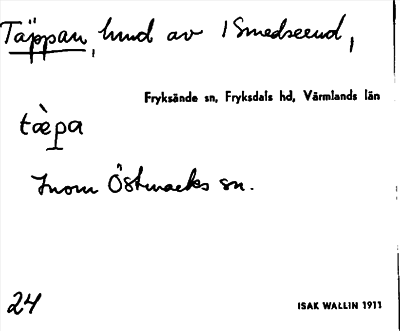 Täppan, lund av 1 Smedseend,
Fryksände sn, Fryksdals hd, Värmlands län
tæ̀pa
Inom Östmarks sn.
24
ISAK WALLIN 1911